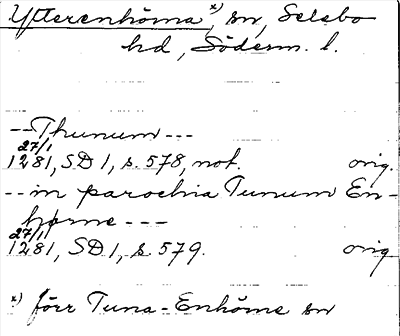 Ytterenhörna x), sn, Selebo
hd, Söderm. l.
-- Thunum ---
27/1
1281, SD 1, s. 578, not. orig.
-- in parochia Tunum En-
hørne ---
27/1
1281, SD 1, s. 579. orig
x) förr Tuna-Enhörne sn